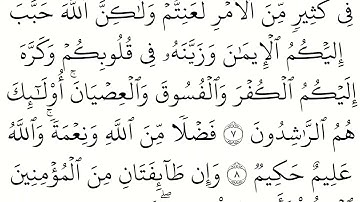 فِى كَثِيرٍ مِّنَ ٱلْأَمْرِ لَعَنِتُّمْ وَلَٰكِنَّ ٱللَّهَ حَبَّبَ
إِلَيْكُمُ ٱلْإِيمَٰنَ وَزَيَّنَهُۥ فِى قُلُوبِكُمْ وَكَرَّهَ
إِلَيْكُمُ ٱلْكُفْرَ وَٱلْفُسُوقَ وَٱلْعِصْيَانَ ۚ أُو۟لَٰٓئِكَ
هُمُ ٱلرَّٰشِدُونَ ٧ فَضْلًا مِّنَ ٱللَّهِ وَنِعْمَةً ۚ وَٱللَّهُ
عَلِيمٌ حَكِيمٌ ٨ وَإِن طَآئِفَتَانِ مِنَ ٱلْمُؤْمِنِينَ